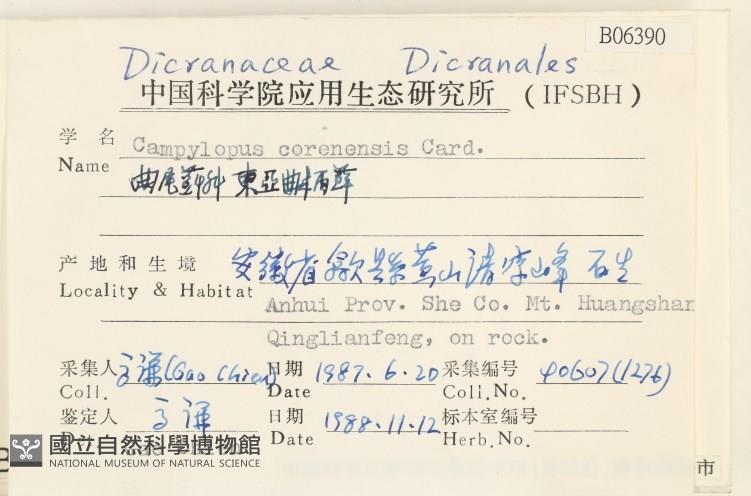 B06390
Dicranaceae Dicranales
中国科学院应用生态研究所 (IFSBH)
学名 Campylopus corenensis Card.
Name 曲尾蘚科 東亞曲柄蘚
产地和生境 安徽省歙縣黄山清峰 石生
Locality & Habitat Anhui Prov. She Co. Mt. Huangshan
Qinglianfeng, on rock.
采集人 高謙(Gao Chien) 日期 1987.6.20 采集编号 40607(1276)
Coll. Date Coll.No.
鉴定人 高謙 日期 1988.11.12 标本室编号
Date Herb.No.
國立自然科學博物館
NATIONAL MUSEUM OF NATURAL SCIENCE
市